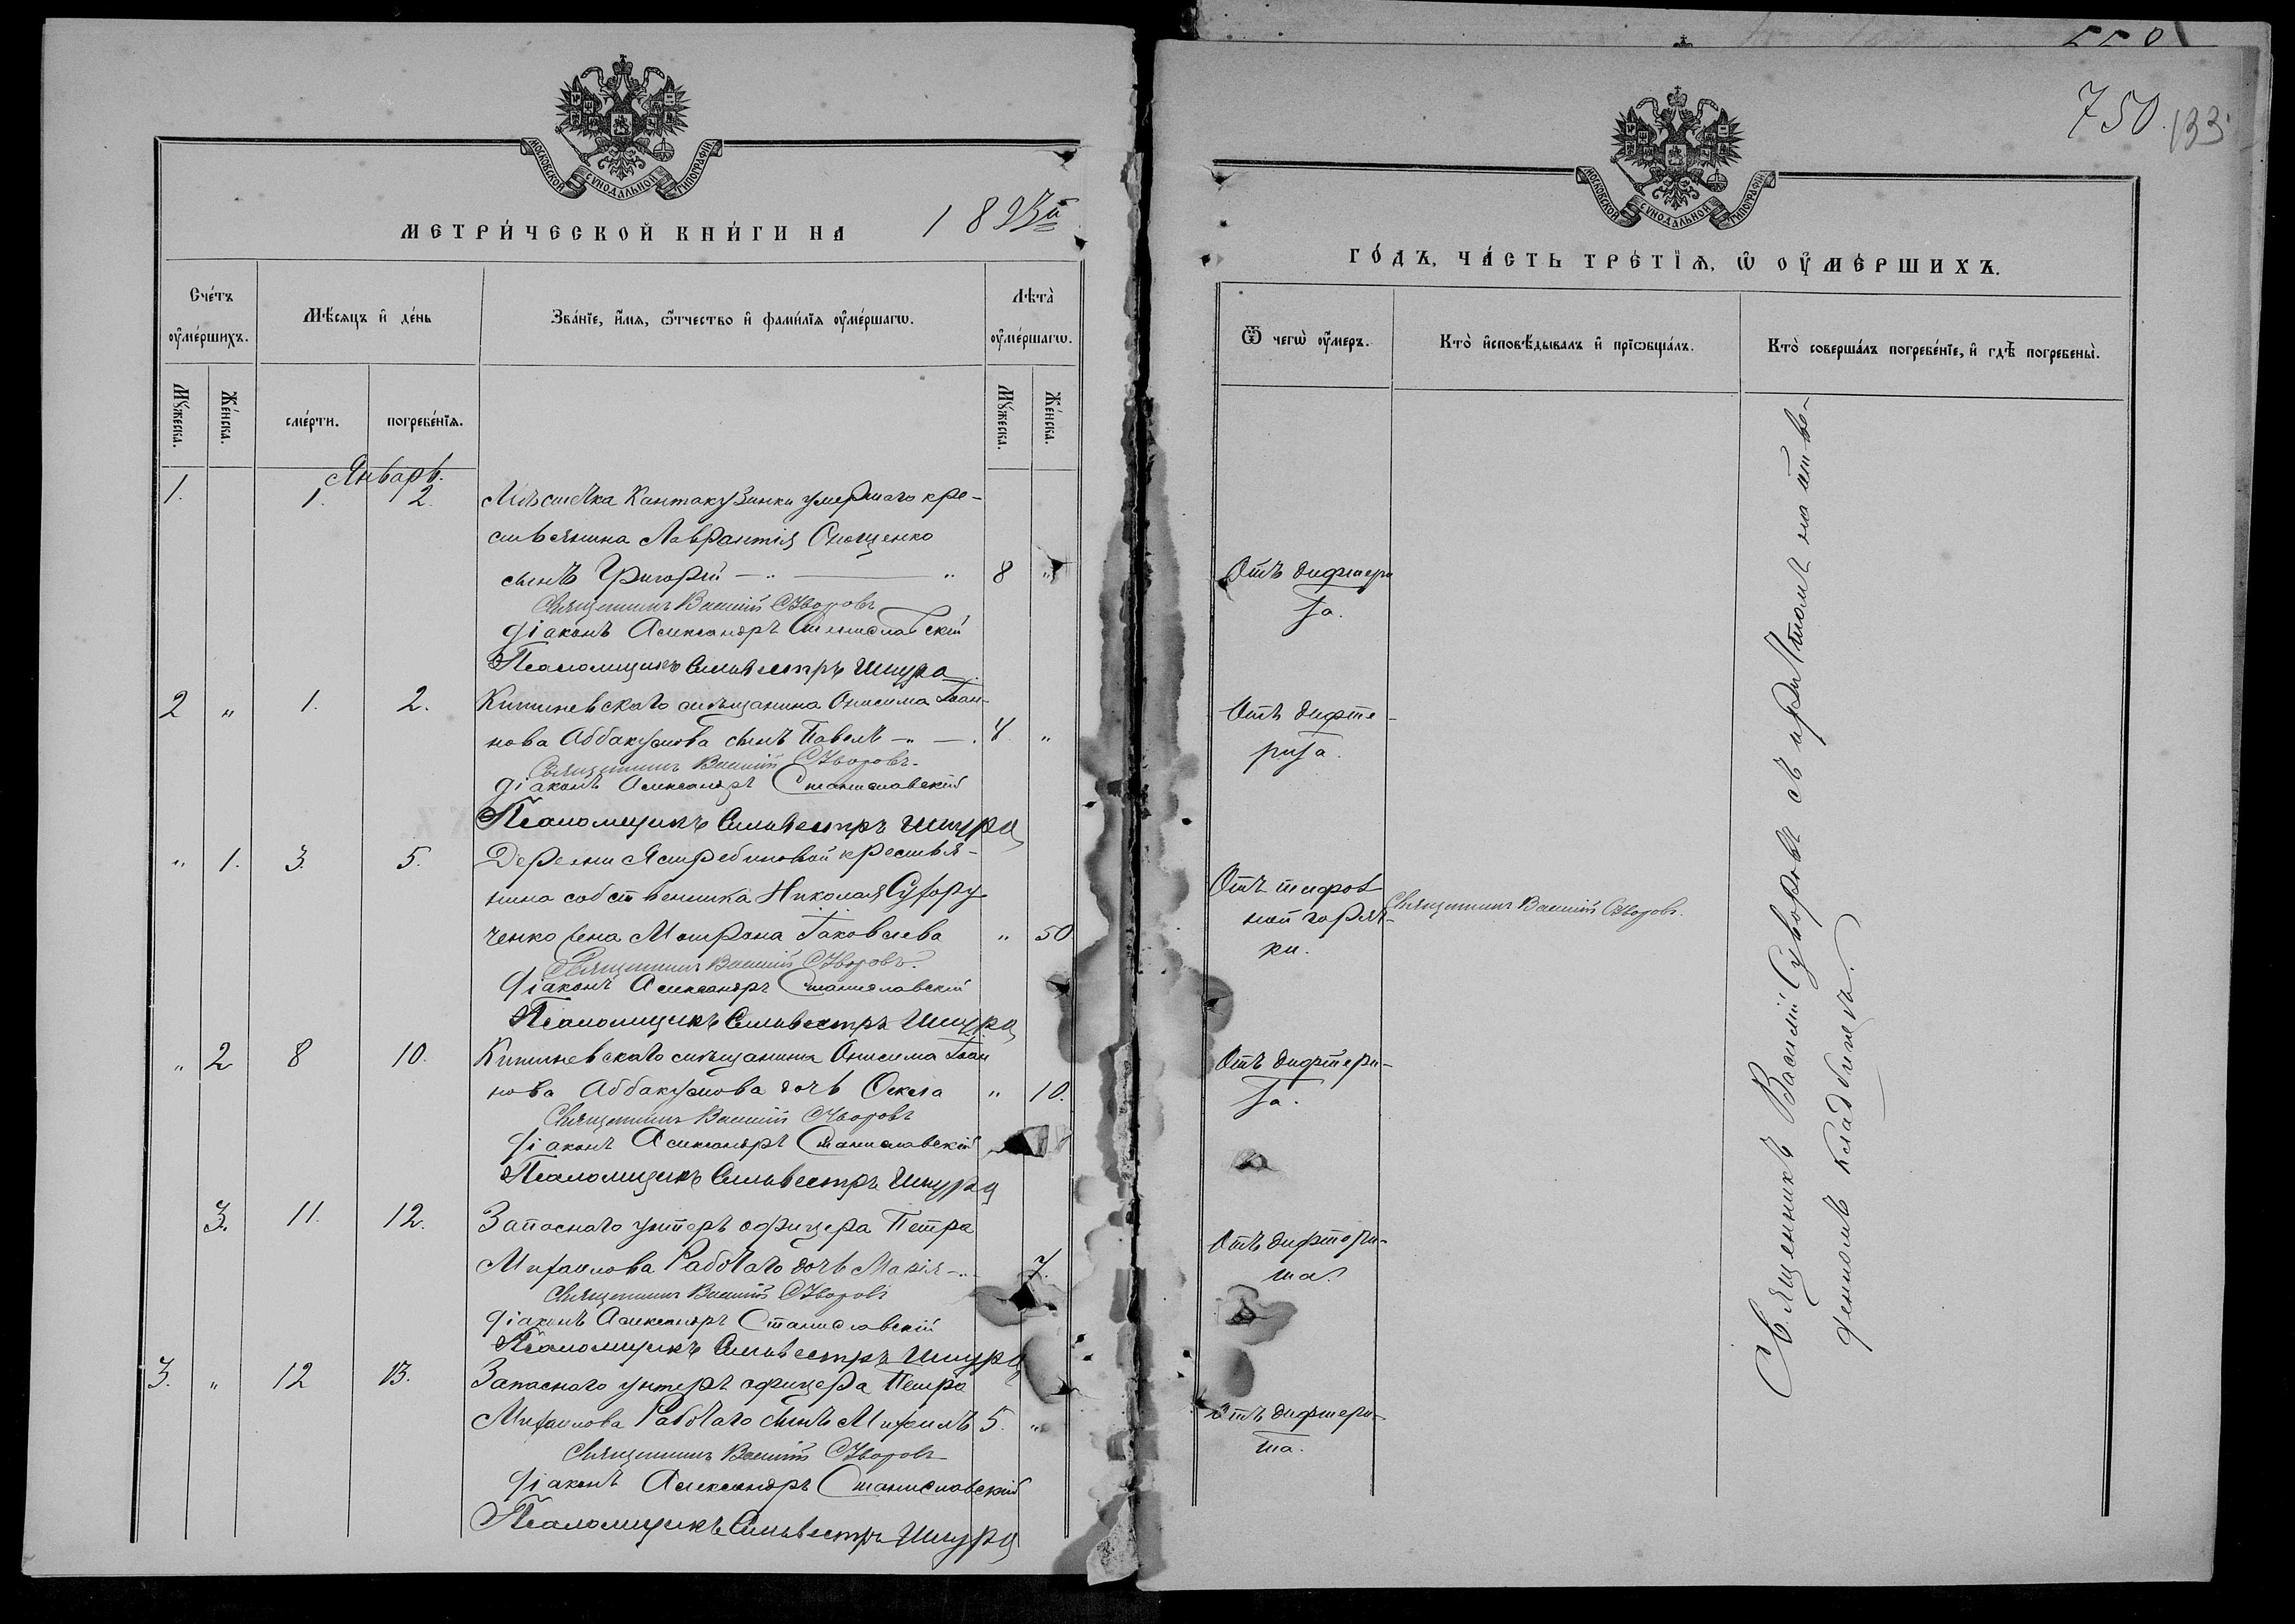 МОСКОВСКОЙ СѴНОДАЛЬНОЙ ТИПОГРАФІИ
МЕТРИ́ЧЕСКОЙ КНИ́ГИ НА
Сче́тъ ᲂу҆ме́ршихъ.
Мѣ́сяцъ и҆ де́нь
Зва́нїе, и҆́мя, ѻ҆́тчество и҆ фами́лїя ᲂу҆ме́ршагѡ.
Лѣ́та ᲂу҆ме́ршагѡ.
Мꙋ́жеска.
Же́нска.
сме́рти.
погребе́нїя.
Мꙋ́жеска.
Же́нска.
Январь.
1. 1. 2. Мѣстечка Кантакузинки умершаго кре-
стьянина Лаврантія
сынъ Григорій 8 "
Священникъ Василій Суворовъ
Діаконъ Александръ Станиславскій
Псаломщикъ Сильвестръ Шкура
2 " 1. 2. Кишиневскаго мѣщанина Онисима Іоан-
нова Аббакумова сынъ Павелъ 4 "
Священникъ Василій Суворовъ
Діаконъ Александръ Станиславскій
Псаломщикъ Сильвестръ Шкура
" 1. 3. 5. Деревни Ястребиновой крестья-
нина собственника Николая Сухору
ченко жена Матрона Іаковлева " 50
Священникъ Василій Суворовъ.
Діаконъ Александръ Станиславскій
Псаломщикъ Сильвестръ Шкура
" 2 8 10. Кишиневскаго мѣщанина Онисима Іоан
нова Аббакумова дочь Ѳекла " 10.
Священникъ Василій Суворовъ
Діаконъ Александръ Станиславскій
Псаломщикъ Сильвестръ Шкура
3. 11. 12. Запаснаго унтеръ офицера Петра
Михайлова Рабочаго дочь Марія 7.
Священникъ Василій Суворовъ
Діаконъ Александръ Станиславскій
Псаломщикъ Сильвестръ Шкура
3. " 12 13. Запаснаго унтеръ офицера Петра
Михайлова Рабочаго сынъ Михаилъ 5. "
Священникъ Василій Суворовъ
Діаконъ Александръ Станиславскій
Псаломщикъ Сильвестръ Шкура
750. 133
МОСКОВСКОЙ СѴНОДАЛЬНОЙ ТИПОГРАФІИ
ГО́ДЪ, ЧА́СТЬ ТРЕ́ТЇѦ, Ѡ҆ ОУ҆МЕ́РШИХЪ.
Ѿ чегѡ̀ ᲂу҆́меръ.
Кто̀ и҆сповѣ́дывалъ и҆ прїѡбща́лъ.
Кто̀ соверша́лъ погребе́нїе, и҆ гдѣ̀ погребены̀.
Отъ дифтери
та.
Отъ дифте-
рита.
Отъ тифоз
ной горяч-
ки.
Священникъ Василій Суворовъ.
Отъ дифтери-
та.
Отъ дифтери-
та.
Отъ дифтери-
та.
Священникъ Василій Суворовъ съ причтомъ на отве-
денномъ кладбищѣ.